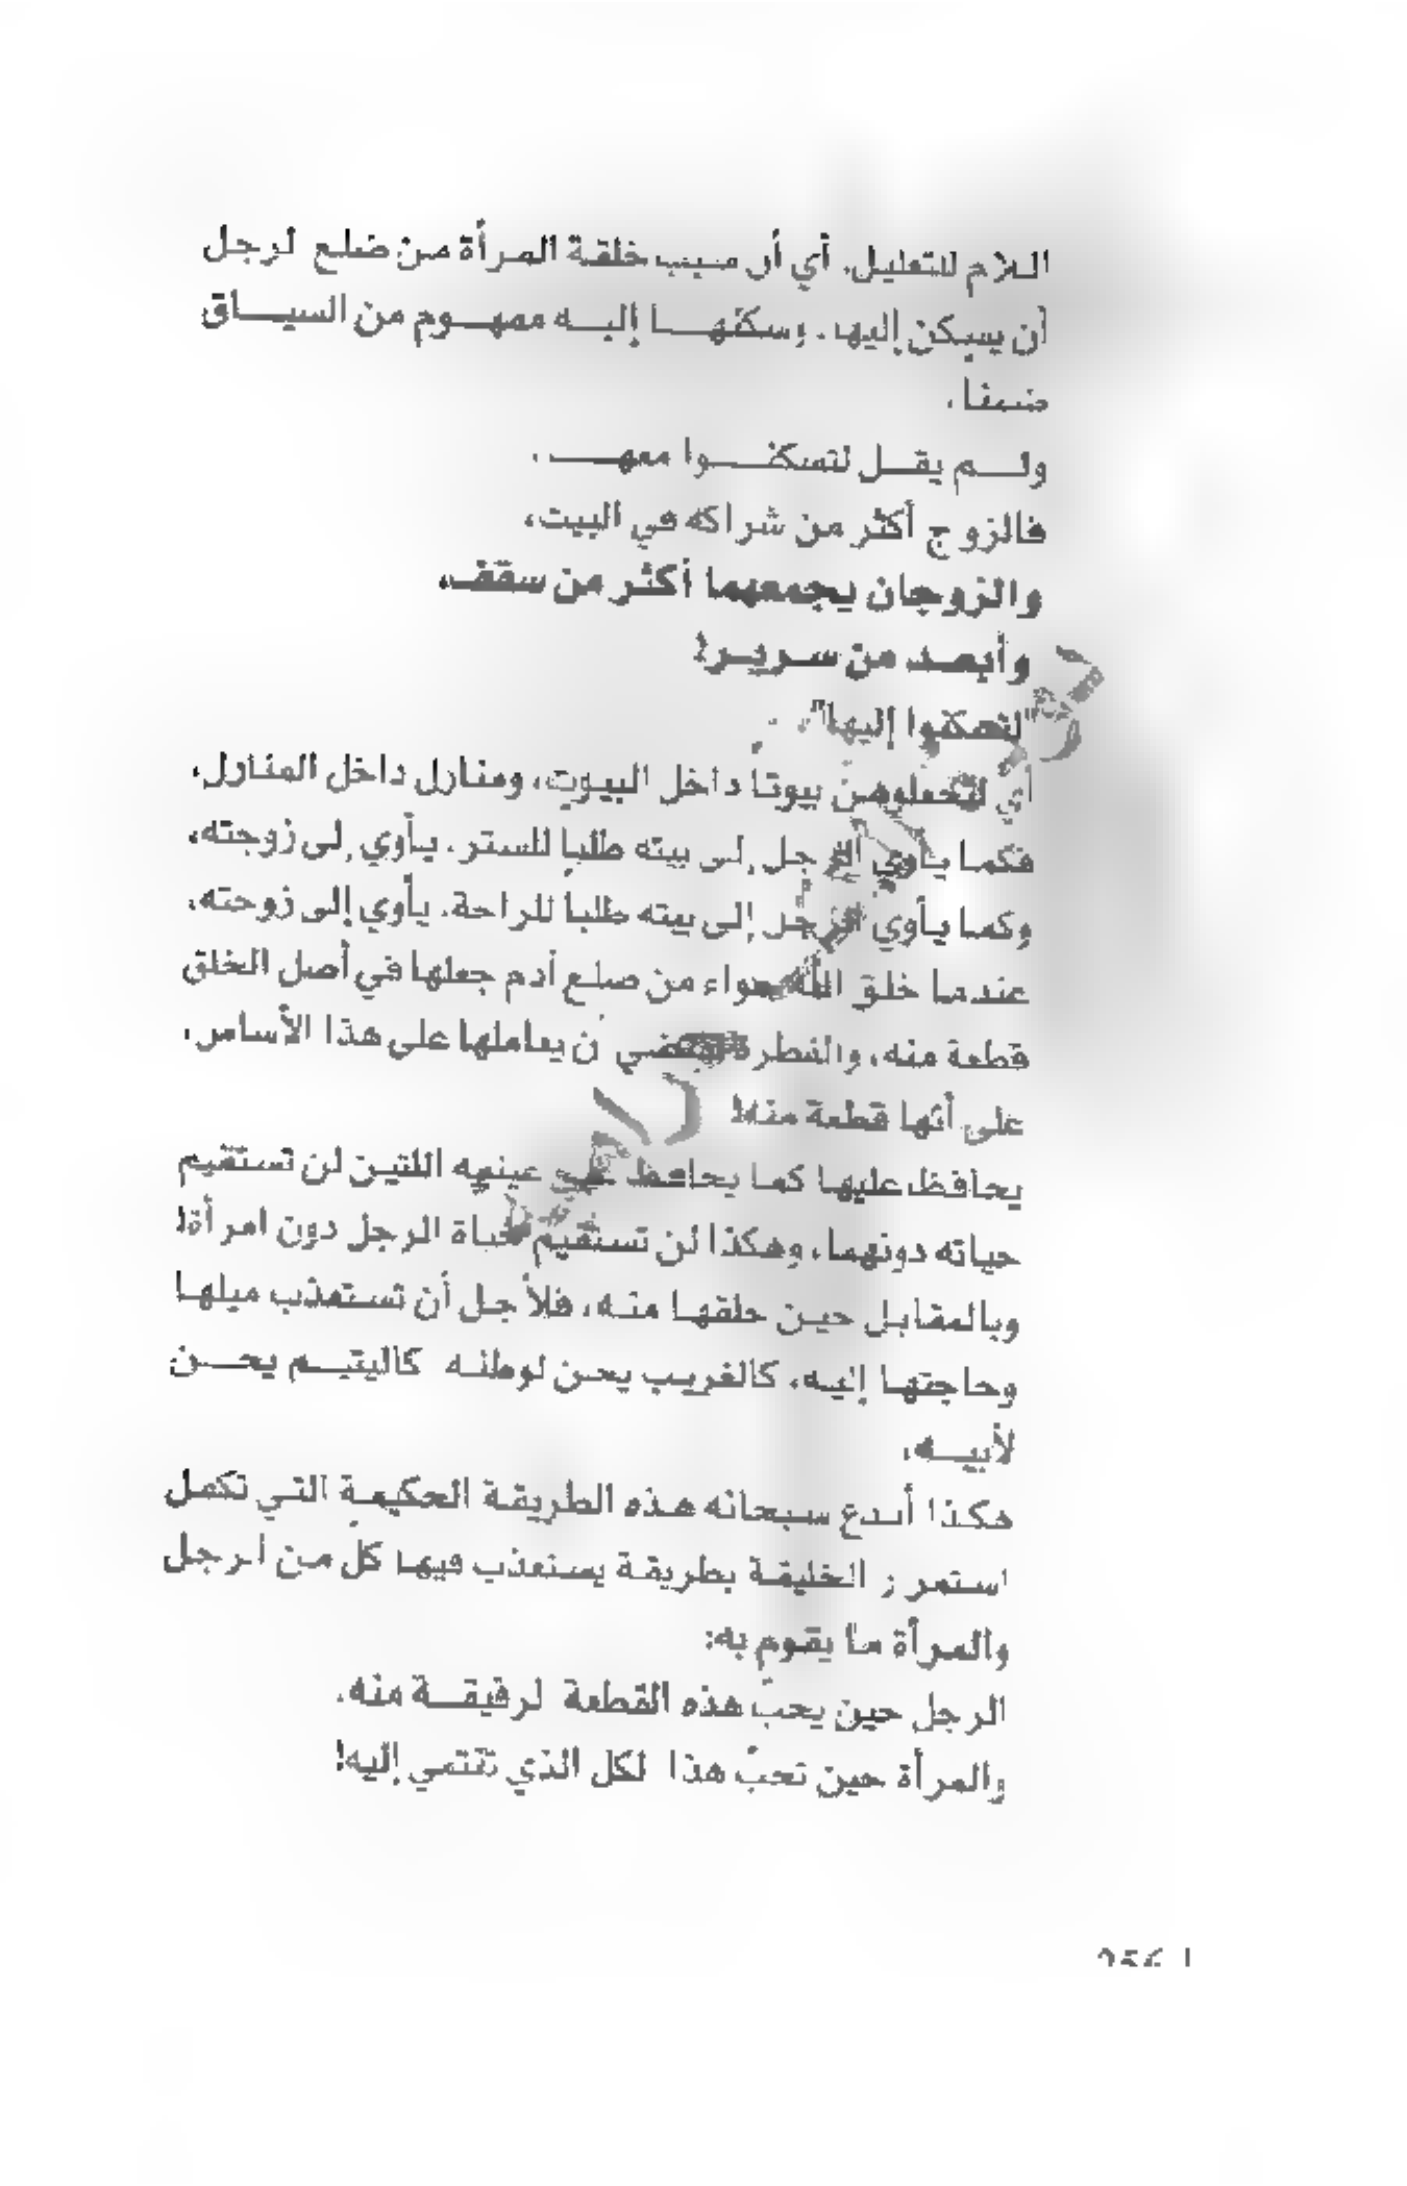 اللام للتعليل، أي أن سبب خلقة المرأة من ضلع الرجل
أن يسكن إليها، وسكنها إليه مفهوم من السياق
ضمنا،
ولم يقل لتسكنوا معها،
فالزواج أكثر من شراكة في البيت،
والزوجان يجمعهما أكثر من سقف،
وأبعد من سرير!
"لتسكنوا إليها"،
أي لتجعلوهنّ بيوتاً داخل البيوت، ومنازل داخل المنازل،
فكما يأوي الرجل إلى بيته طلباً للستر، يأوي إلى زوجته،
وكما يأوي الرجل إلى بيته طلباً للراحة، يأوي إلى زوجته،
عندما خلق الله حواء من ضلع آدم جعلها في أصل الخلق
قطعة منه، والفطرة تقتضي أن يعاملها على هذا الأساس،
على أنها قطعة منه!
يحافظ عليها كما يحافظ على عينيه اللتين لن تستقيم
حياته دونهما، وهكذا لن تستقيم حياة الرجل دون امرأة!
وبالمقابل حين خلقها منه، فلأجل أن تستعذب ميلها
وحاجتها إليه، كالغريب يحن لوطنه كاليتيم يحن
لأبيه،
هكذا أبدع سبحانه هذه الطريقة الحكيمة التي تكفل
استمرار الخليقة بطريقة يستعذب فيها كلّ من الرجل
والمرأة ما يقوم به:
الرجل حين يحبّ هذه القطعة الرقيقة منه،
والمرأة حين تحبّ هذا الكل الذي تنتمي إليه!